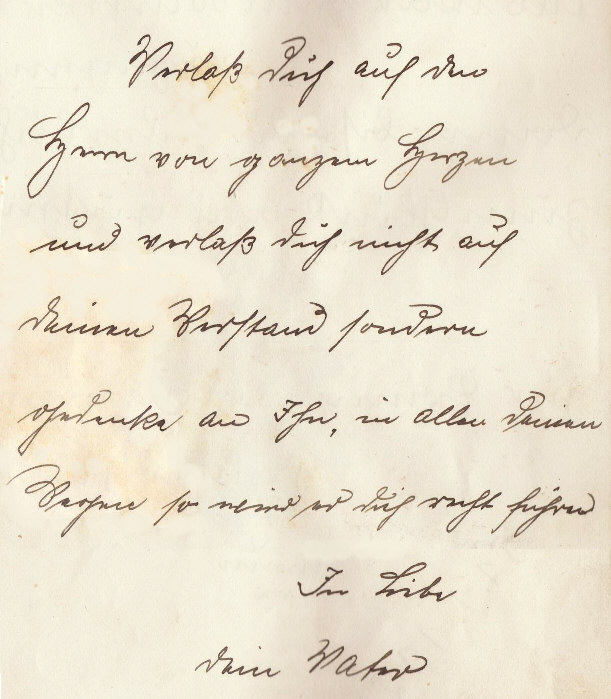 Verlaß dich auf den
Herrn von ganzem Herzen
und verlaß dich nicht auf
deinen Verstand sondern
gedenke an Ihn, in allen deinen
Wegen so wird er dich recht führen
In Liebe
dein Vater